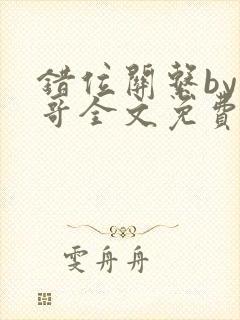 錯位關系by
哥全文免費
雯舟舟